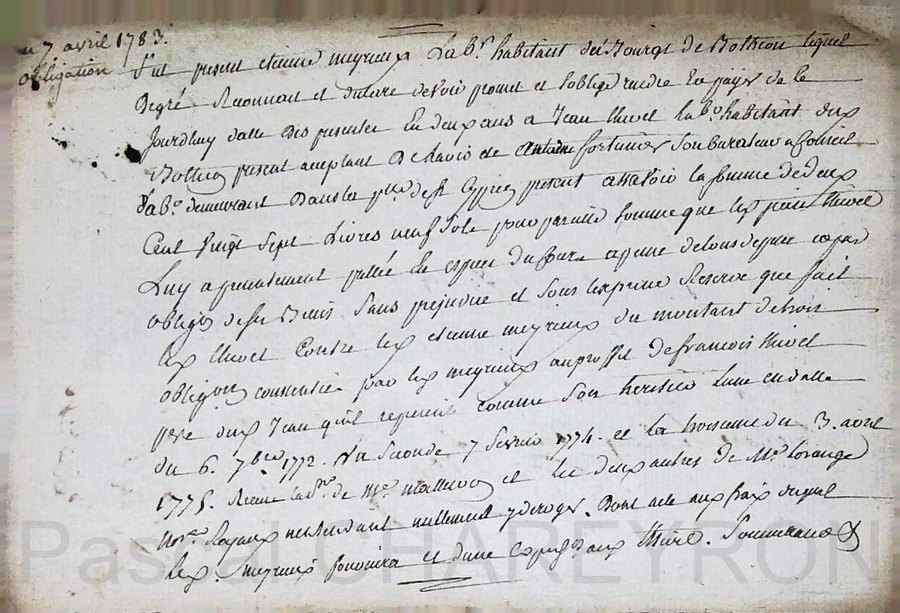 du 7 avril 1783.
obligation
fut present etienne meyrieux Lab.r habitant du Bourg de Bothieon lequel
Degré Reconnait et declare devoir promet et soblige rendre En payer de ce
Jourdhuy datte Des presentes En deux ans a Jean thivel lab.r habitant dud
present acceptant De lavis de antoine fortunier Son curateur a conseil
Lab.r demeurant Dans la p.sse de st Cyprien present assavoir la somme de deux
Cent vingt Sept Livres neuf Sols pour pareille somme que led jean thivel
Luy a presentement prettée En especes du cours apeine de tous depens et par
obligon de ses Biens Sans prejudice et Sous lexpresse Reserve que fait
led thivel Contre led etienne meyrieux du montant de trois
obligons consenties par led meyrieux au proffit de francois thivel
pere dud Jean quil represente comme Son heritier Lune en datte
du 6. 7bre 1772. La Seconde 7 fevrier 1774. et la troisieme du 3. avril
1775. de me et les deux autres de Me Lorange
no.res Royaux nentendant nullement y deroger. Dont acte aux frais duquel
led. meyrieux fournira et dune expedon aud thivel.
Pascal CHAREYRON